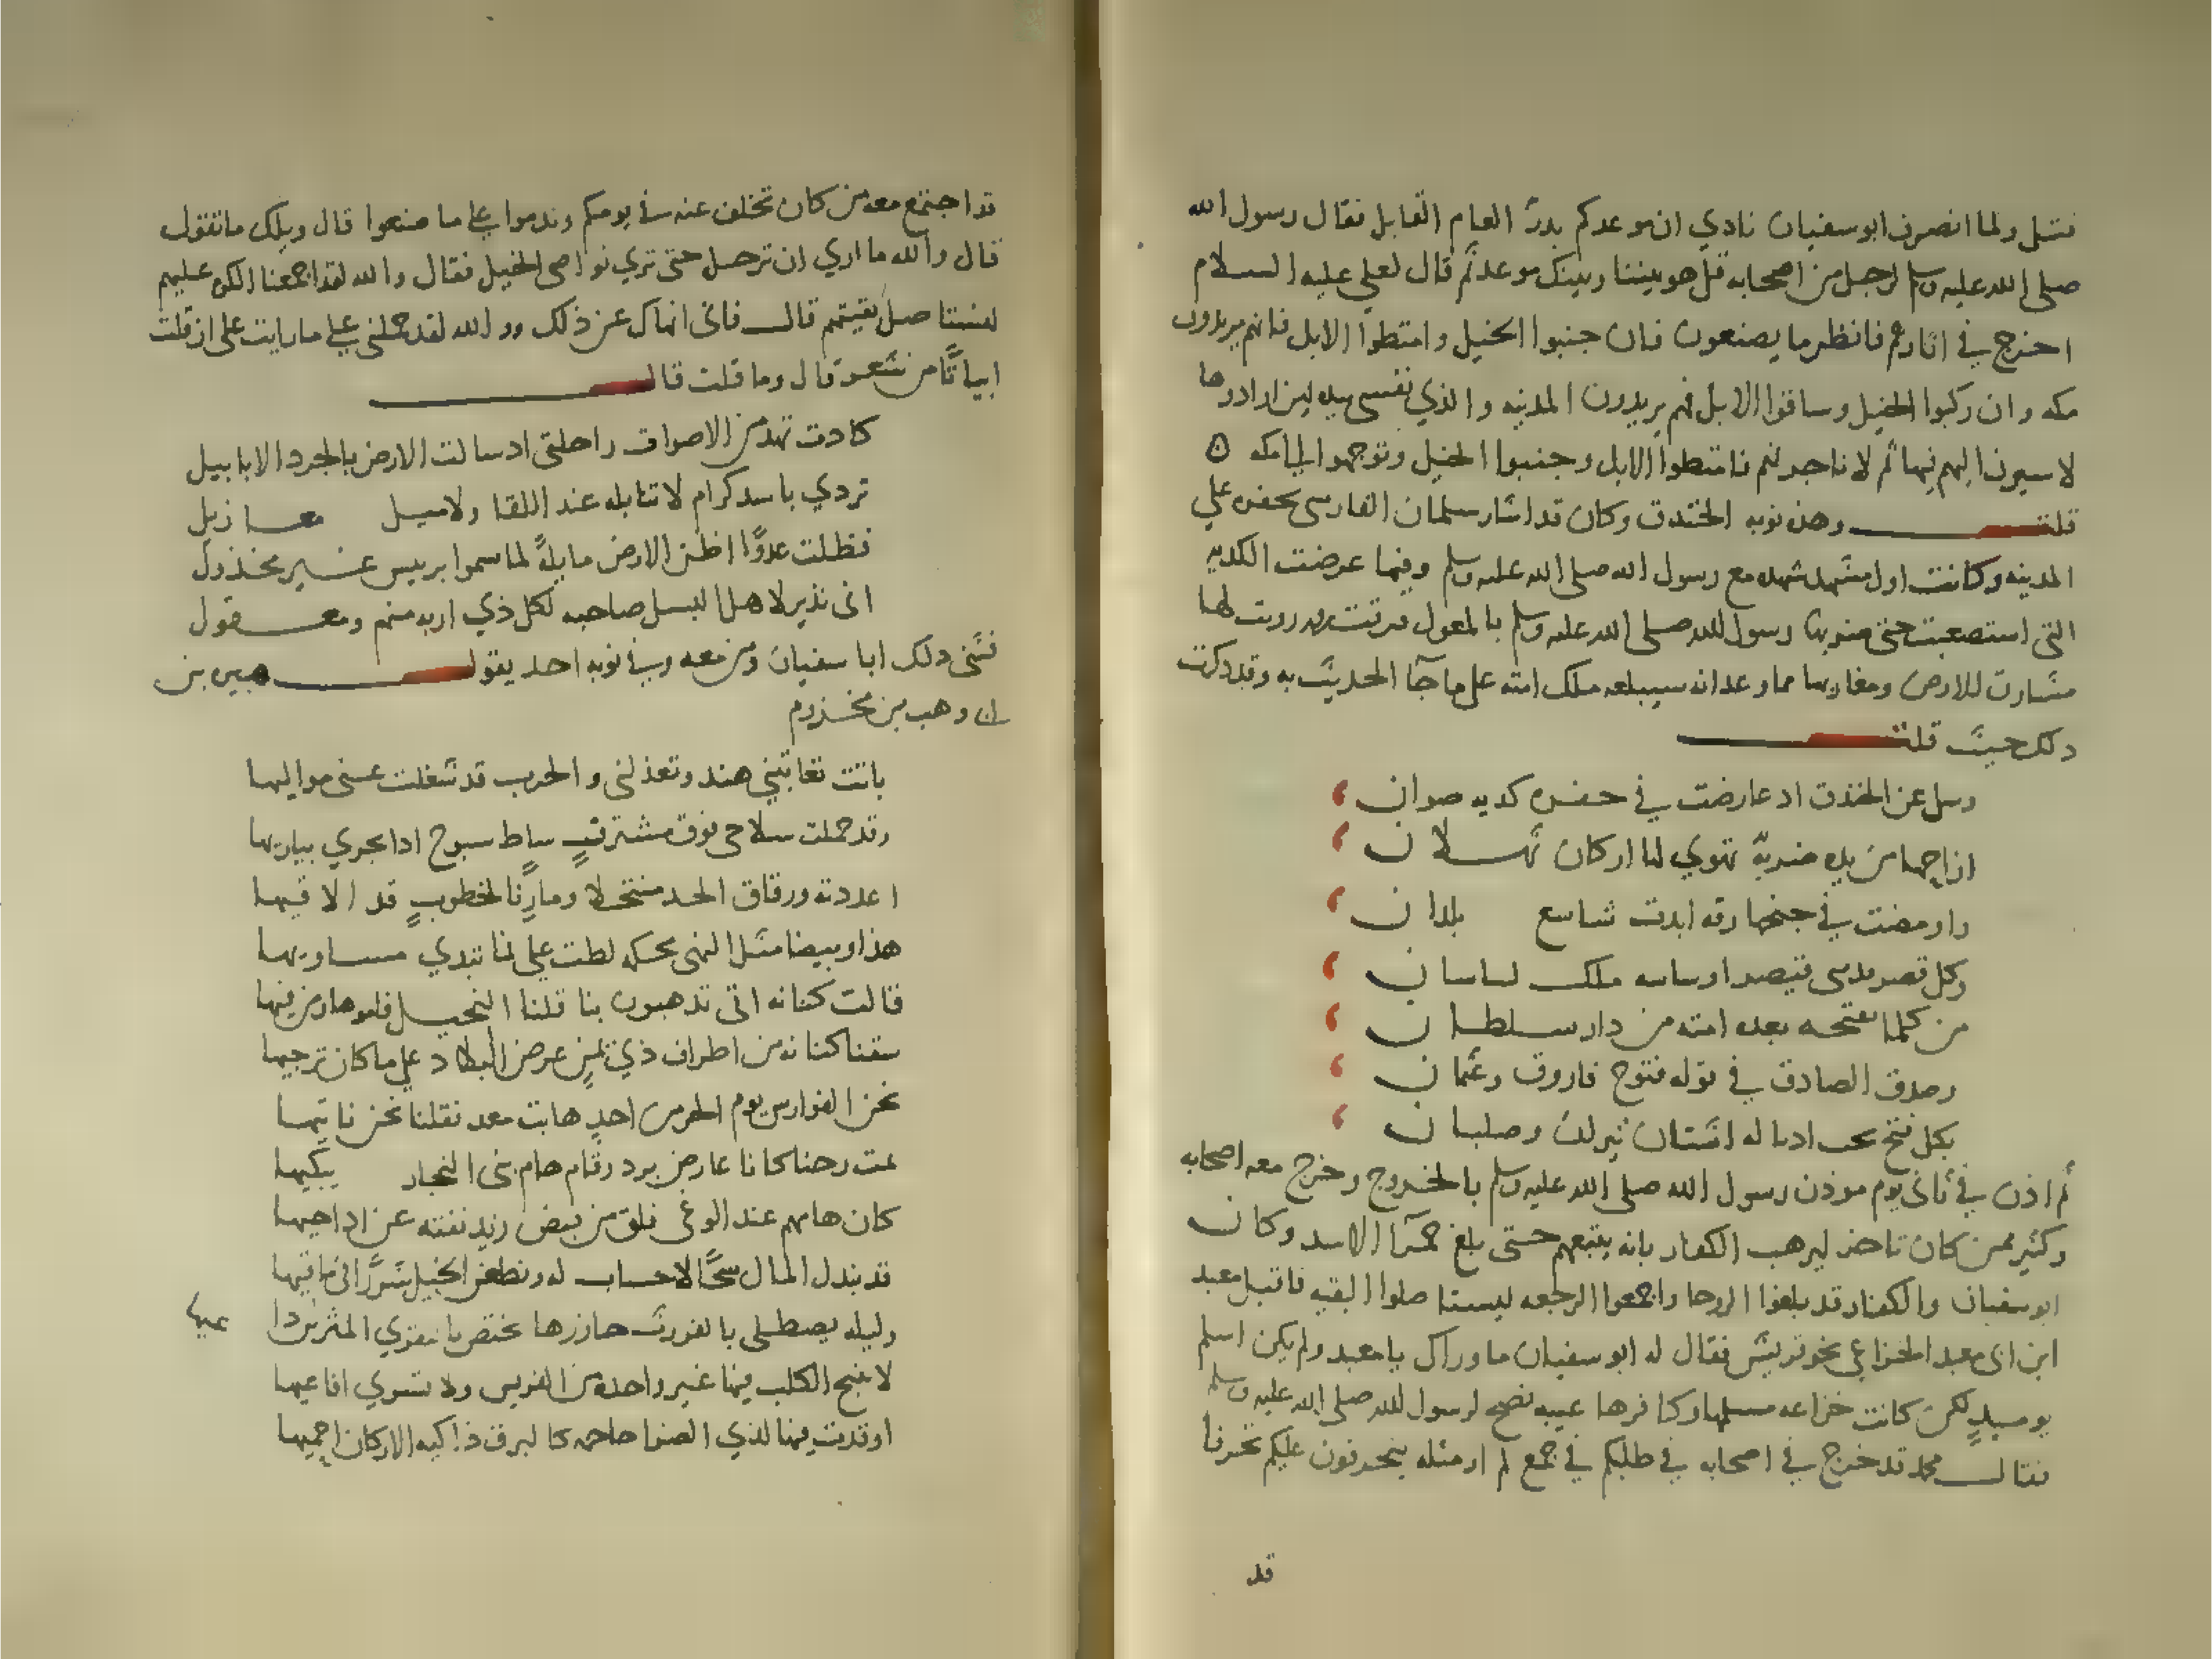 فتيل ولما انصرف ابو سفيان نادي ان موعدكم بدرٌ العام القابل فقال رسول الله
صلى الله عليه وسلم لرجل من اصحابه قل هو بيننا وبينك موعد ثم قال لعلي عليه السلام
اخرج في اثارهم فانظر ما يصنعون فان جنبوا الخيل وامتطوا الابل فانهم يريدون
مكه وان ركبوا الخيل وساقوا الابل فهم يريدون المدينه والذي نفسي بيده لين ارادوها
لاسيرن اليهم فيها ثم لاناجزنهم فامتطوا الابل وجنبوا الخيل وتوجهوا الى مكه
قلت وهذه نوبه الخندق وكان قد اشار سلمان الفارسي بحفره علي
المدينه وكانت اول مشهد شهده مع رسول الله صلى الله عليه وسلم وفيها عرضت الكديه
التي استصعبت حتى ضربها رسول الله صلى الله عليه وسلم بالمعول فرقت وزويت لها
مشارق الارض ومغاربها مما وعد انه سيبلغه ملك امته على ما جآ الحديث به وقد ذكرت
دلك حيث قلت
وسل عن الخندق اد عارضت في حفره كديه صوان
اذا جها من يده ضربةٌ تهوي لها اركان ثهلان
واومضت في جنحها رقه ابدت شاسع بلدان
وكل قصر مدىى قيصر او ساسه ملك لساسان
من كلما تفتحه بعده امته من دار سلطان
وصدق الصادق في قوله فتوح فاروق وعثمان
بكل فتح اشتات نيران وصلبان
ثم اذن في ثاني يوم موذن رسول الله صلى الله عليه وسلم بالخروج وخرج معه اصحابه
وكثير ممن كان تاخر ليرهب الكفار بانه يتبعهم حتى بلغ حمرآ الاسد وكان
ابو سفيان والكفار قد بلغوا الروحا واجمعوا الرجعه ليستاصلوا البقيه فاقبل معبد
ابن ابي معبد الخزاعي نحو قريش فقال له ابو سفيان ما وراك يا معبد ولم يكن اسلم
يوميذٍ لكن كانت خزاعه مسلمها وكافرها عيبه نصح لرسول الله صلى الله عليه وسلم
فقال محمد قد خرج في اصحابه في طلبكم في جمع لم ار مثله يتحرقون عليكم تحرقا
قد
قد اجتمع معه من كان تخلف عنه في يومكم وندموا على ما صنعوا قال ويلك ما تقول
قال والله ما اري ان ترحل حتى تري نواصي الخيل فقال والله لقد اجمعنا الكره عليهم
لنستاصل بقيتهم قال فاني انهاك عن ذلك ووالله لقد حملني على ما رايت على ان قلت
ابياتًا من شعر قال وما قلت قال
كادت تهد من الاصوات راحلتي اد سالت الارض بالجرد الابابيل
تردي باسد كرام لا تنابله عند اللقا ولا ميل معازيل
فظلت عدوًا اظن الارض مايلةً لما سموا برييس غير مخذول
اني نذير لاهل البسل صاحبه لكل ذي اربه منهم ومعقول
فثنى دلك ابا سفيان ومن معه وفي نوبه احد يقول هبيره بن
ابن وهب بن مخزوم
باتت تعاتبني هند وتعذلني والحرب قد شغلت عني مواليها
وقد حملت سلاحي فوق مشترفٍ ساطٍ سبوح ادا تجري يباريها
اعددته ورقاق الحد منتخلا ومارنا لخطوبٍ قد الاقيها
هذا وبيضا مثل النهي محكمه لطت علي فما تبدي مساويها
قالت كنانه انى تذهبون بنا قلنا النخيل فاموها ومن فيها
سقنا كنانه من اطراف ذي يمن عرض البلاد علي ما كان ترجيها
نحن الفوارس يوم الجر من احدٍ هابت معد فقلنا نحن ناتيها
ثمت رحنا كانا عارض برد وقام هام بني النجار يبكيها
كان هامهم عند الوغي فلق من بيض ربد نفته عن اداحيها
قد نبدل المال سحًّا لا حساب له ونطعن الخيل شزرًا في ماقيها
وليله يصطلي بالفرث جازرها يختص بالنقري المثرين داعيها
لا ينبح الكلب فيها غير واحده من القريس ولا تسري افاعيها
اوقدت فيها لذي الضرا جاحمه كالبرق ذاكيه الاركان احميها